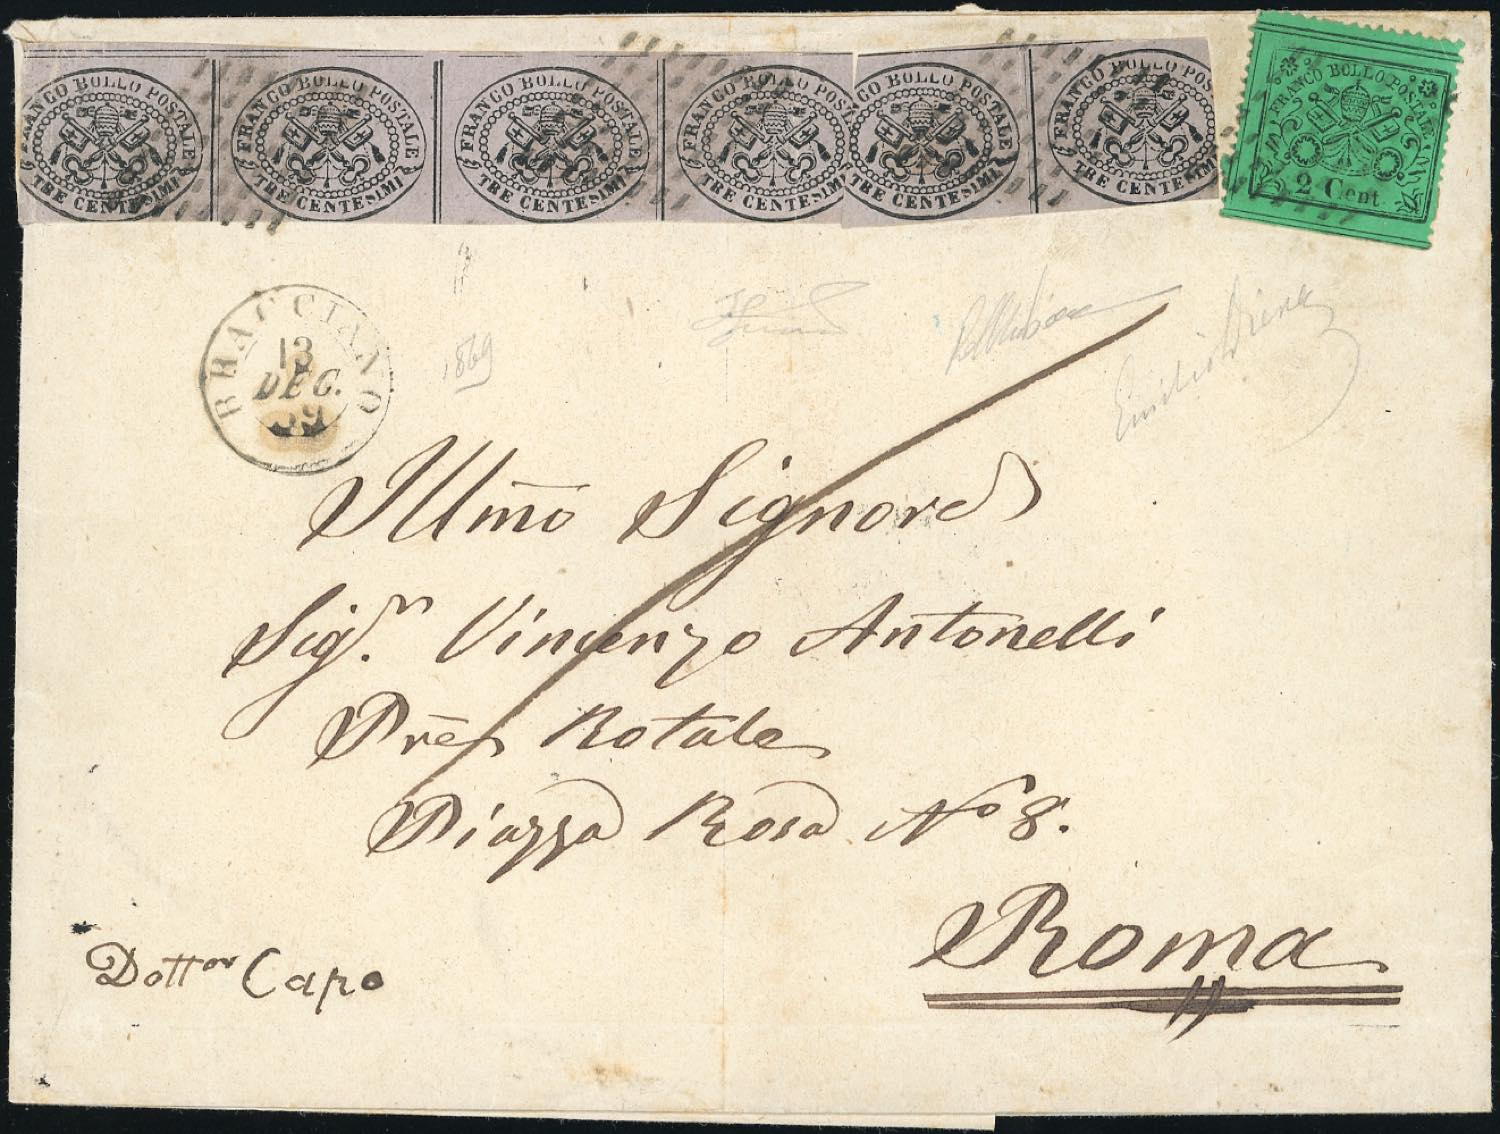 FRANCO BOLLO POSTALE TRE CENTESIMI
FRANCO BOLLO POSTALE TRE CENTESIMI
FRANCO BOLLO POSTALE TRE CENTESIMI
FRANCO BOLLO POSTALE TRE CENTESIMI
FRANCO BOLLO POSTALE TRE CENTESIMI
FRANCO BOLLO POSTALE TRE CENTESIMI
FRANCO BOLLO POSTALE
2 Cent.
BRACCIANO
13
DEC.
69
1869
Emilio Diena
Illmo Signore
Sigr. Vincenzo Antonelli
Pre Rotale
Piazza Rosa No 8.
Roma
Dottor Capo